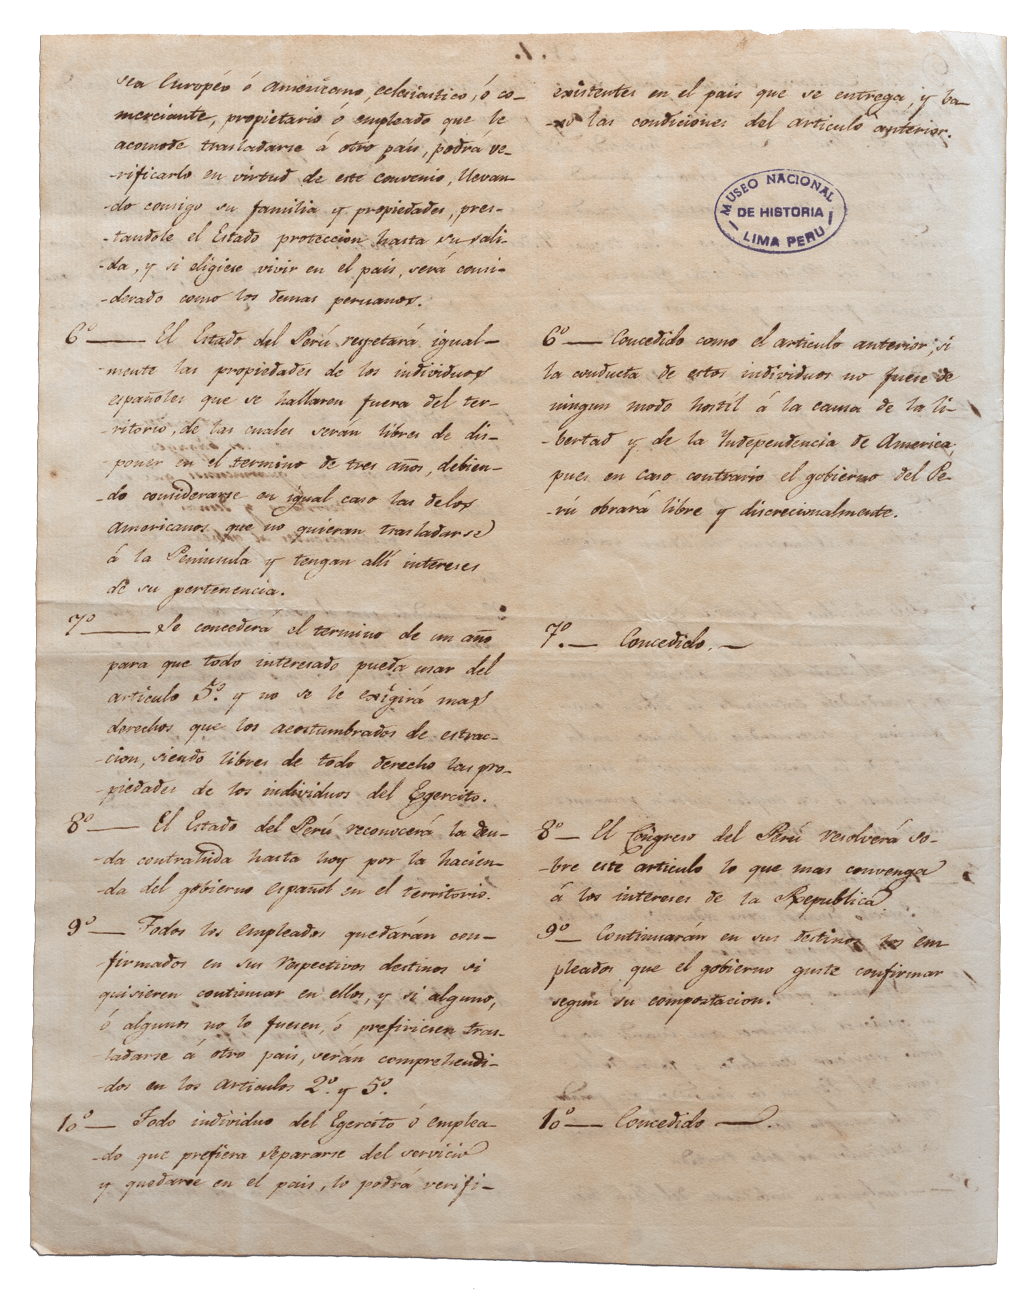 sea Européo ó Americano, eclesiastico, ó co-
merciante, propietario ó empleado que le
acomode trasladarse á otro pais, podrá ve-
-rificarlo en virtud de este convenio, llevan-
-do consigo su familia y propiedades, pres-
-tandole el Estado proteccion hasta su sali-
-da, y si eligiese vivir en el pais, será consi-
-derado como los demas peruanos.
6º — El Estado del Perú respetará igual-
-mente las propiedades de los individuos
españoles que se hallaren fuera del ter-
-ritorio, de las cuales serán libres de dis-
-poner en el termino de tres años, debien-
-do considerarse en igual caso las de los
Americanos que no quieran trasladarse
á la Peninsula y tengan allí intereses
de su pertenencia.
7º — Se concederá el termino de un año
para que todo interesado pueda usar del
articulo 5º. y no se le exigirá mas
derechos que los acostumbrados de estrac-
-cion, siendo libres de todo derecho las pro-
-piedades de los individuos del Egercito.
8º — El Estado del Perú reconocerá la deu-
-da contrahida hasta hoy por la hacien-
-da del gobierno español en el territorio.
9º — Todos los empleados quedarán con-
-firmados en sus respectivos destinos si
quisieren continuar en ellos, y si alguno,
ó algunos no lo fuesen, ó prefiriesen tras-
-ladarse á otro pais, serán comprehendi-
-dos en los Articulos 2º. y 5º.
10º — Todo individuo del Egercito ó emplea-
-do que prefiera separarse del servicio
y quedarse en el pais, lo podrá verifi-
existentes en el pais que se entrega, y ba-
-xo las condiciones del articulo anterior.
MUSEO NACIONAL
DE HISTORIA
LIMA PERU
6º — Concedido como el articulo anterior, si
la conducta de estos individuos no fuese de
ningun modo hostil á la causa de la li-
-bertad y de la Independencia de America,
pues en caso contrario el gobierno del Pe-
-rú obrará libre y discrecionalmente.
7º. — Concedido. —
8º — El Congreso del Perú resolverá so-
-bre este articulo lo que mas convenga
á los intereses de la Republica
9º — Continuarán en sus destinos los em-
pleados que el gobierno guste confirmar
segun su comportacion.
10º — Concedido —.